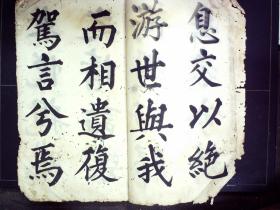 息交以絶
游世與我
而相遺復
駕言兮焉